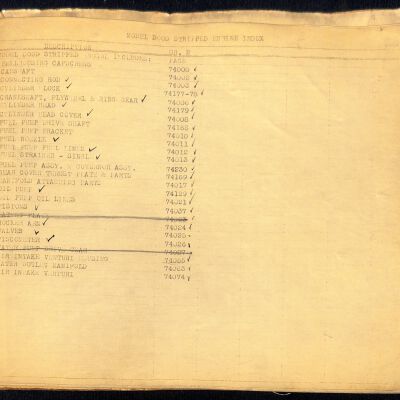 MODEL DOOD STRIPPED ENGINE INDEX
DESCRIPTION GR. E
MODEL DOOD STRIPPED ENGINE INCLUDES: PAGE
CAMSHAFT 74002 ✓
CONNECTING ROD ✓ 74003 ✓
CYLINDER BLOCK ✓ 74177-78 ✓
CRANKSHAFT, FLYWHEEL & RING GEAR ✓
CYLINDER HEAD ✓ 74179 ✓
CYLINDER HEAD COVER ✓ 74008 ✓
FUEL PUMP DRIVE SHAFT
FUEL PUMP BRACKET 74010 ✓
FUEL NOZZLE ✓ 74011 ✓
FUEL PUMP FUEL LINES ✓ 74012 ✓
FUEL STRAINER - SINGL ✓ 74013 ✓
FUEL PUMP ASSY. & GOVERNOR ASSY. 74230 ✓
GEAR COVER TIMING PLATE & PARTS 74169 ✓
MANIFOLD ATTACHING PARTS 74017 ✓
OIL PUMP ✓ 74129 ✓
OIL PUMP OIL LINES 74021 ✓
PISTONS ✓ 74037 ✓
ROCKER ARM ✓ 74024 ✓
VALVES ✓ 74025
VISCOMETER ✓ 74026
AIR INTAKE VENTURI HOUSING
WATER OUTLET MANIFOLD
AIR INTAKE VENTURI 74074 ✓